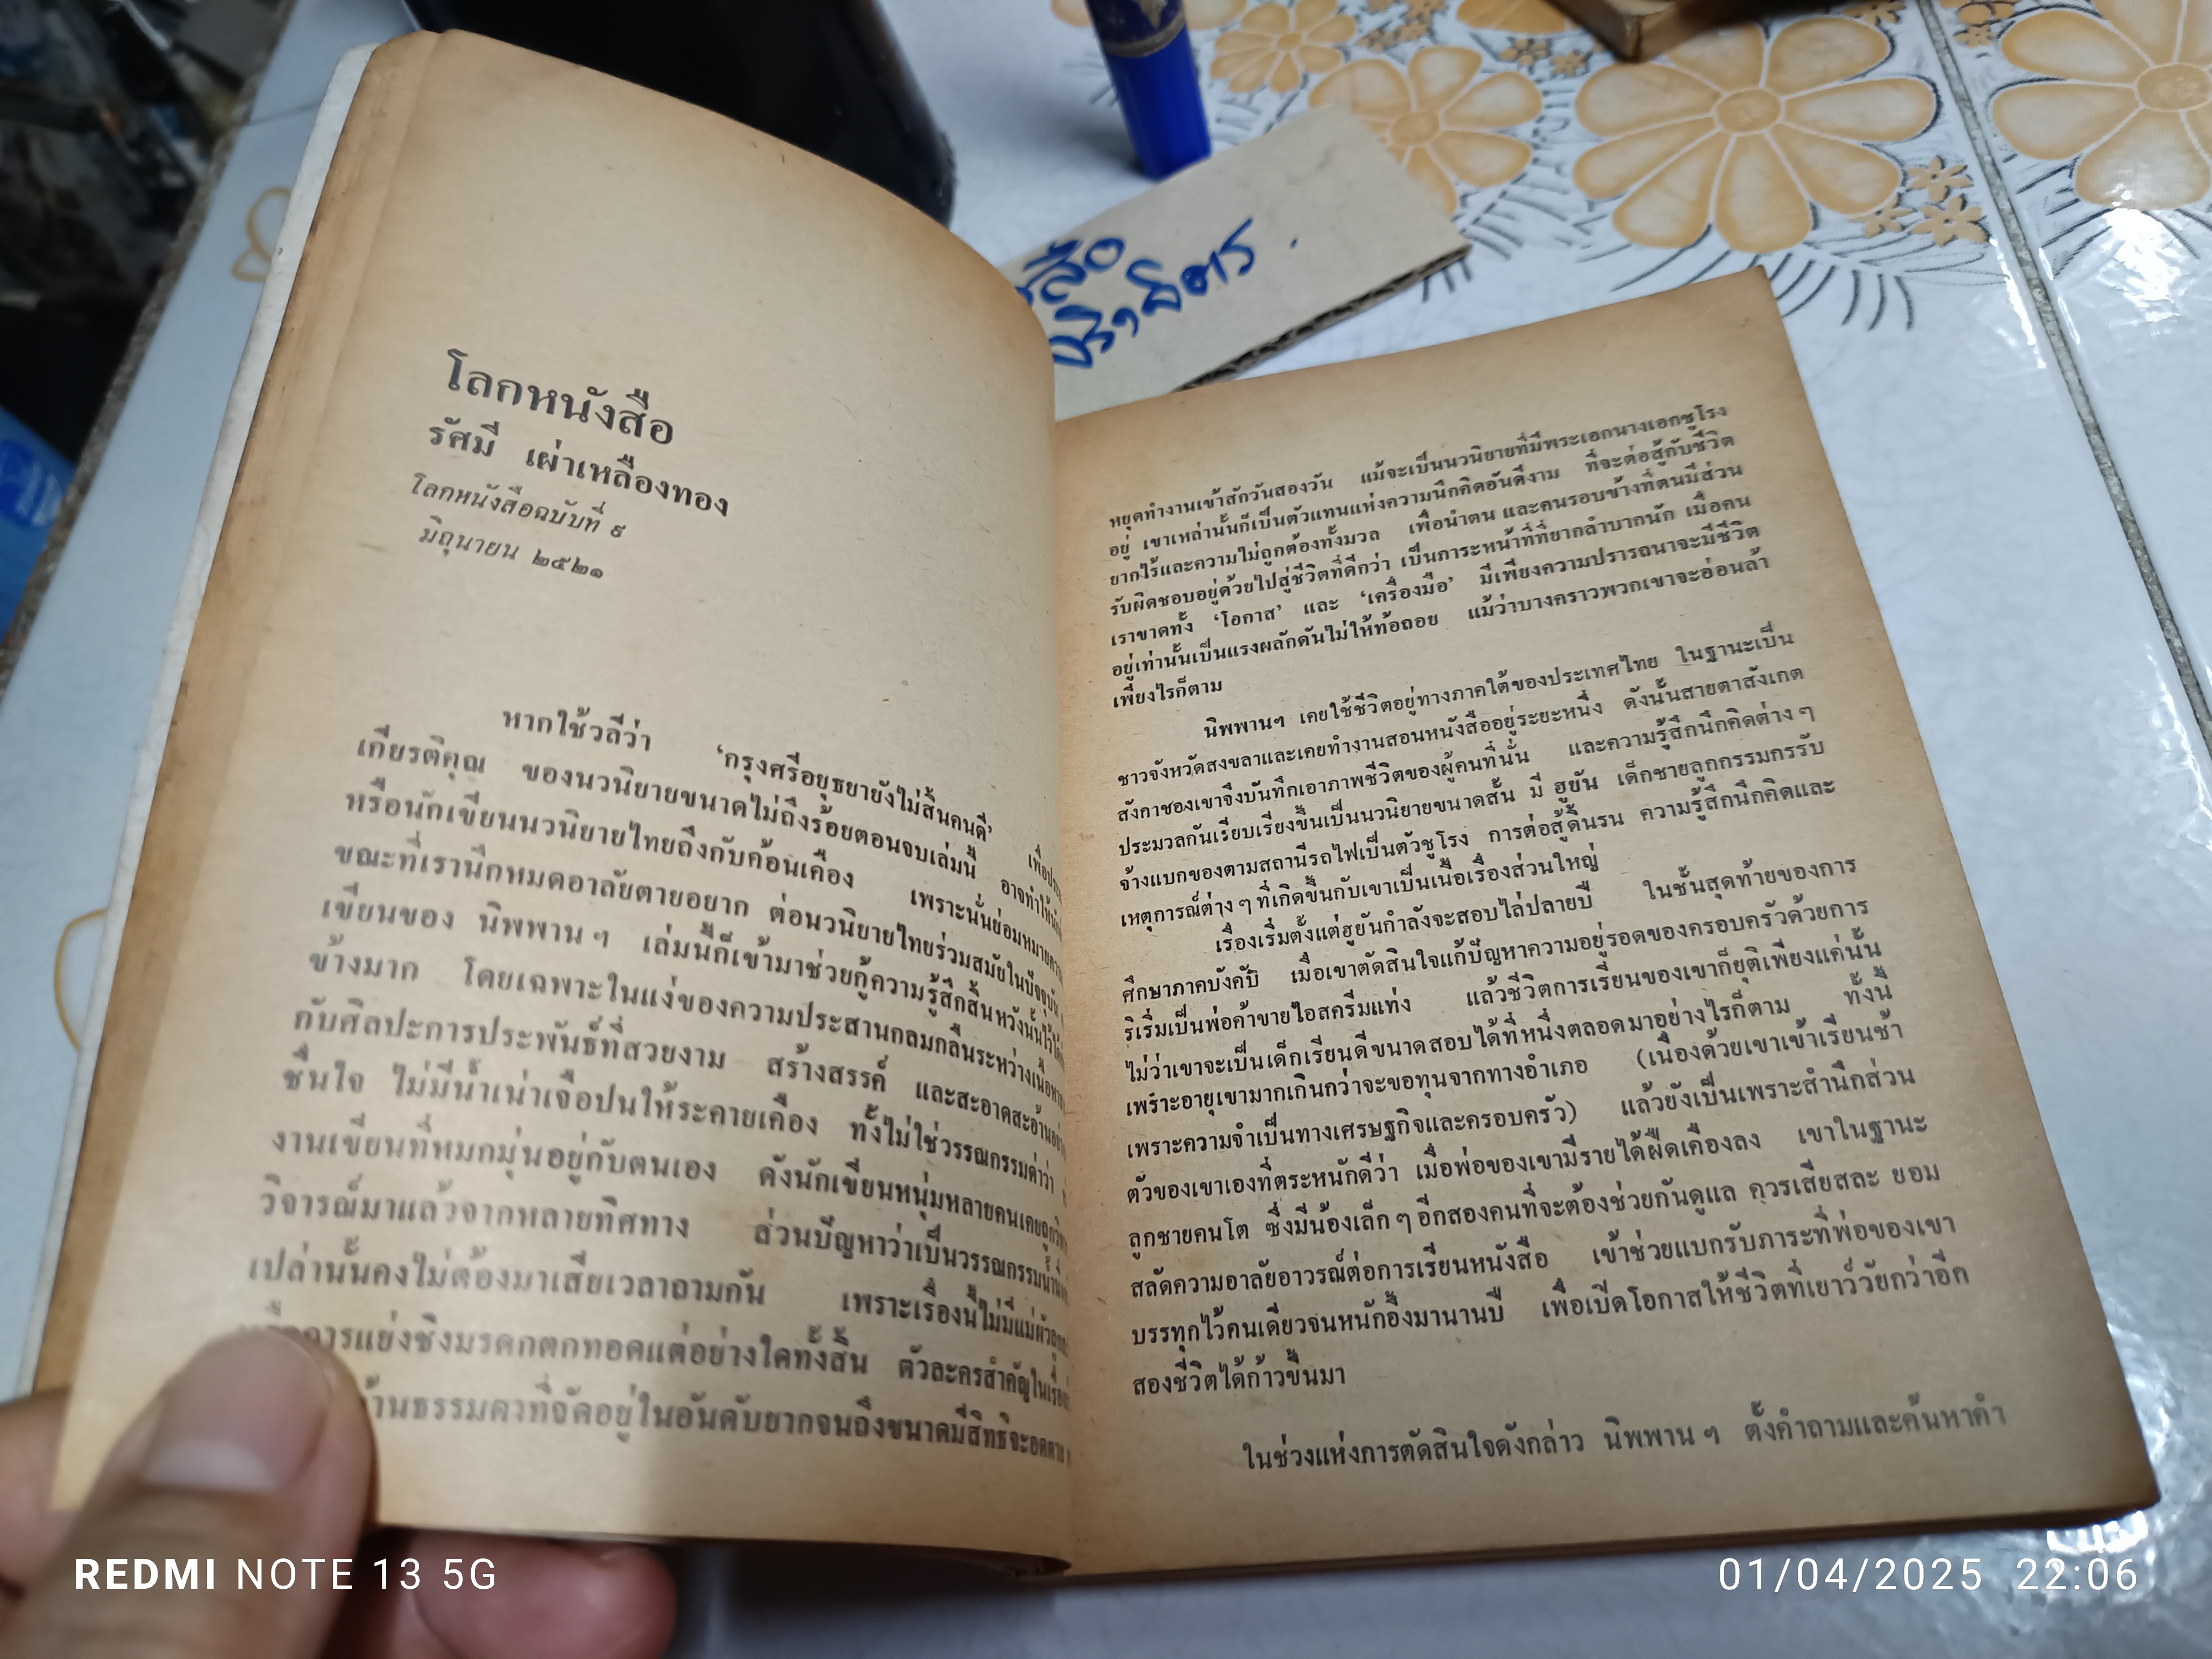 โลกหนังสือ
รัศมี เผ่าเหลืองทอง
โลกหนังสือฉบับที่ ๙
มิถุนายน ๒๕๒๑
หากใช้วลีว่า ‘กรุงศรีอยุธยายังไม่สิ้นคนดี’
เกียรติคุณ ของนวนิยายขนาดไม่ถึงร้อยตอนจบเล่มนี้ อาจทำให้
หรือนักเขียนนวนิยายไทยถึงกับค้อนเคือง เพราะนั่นย่อมหมายความ
ขณะที่เรานึกหมดอาลัยตายอยาก ต่อนวนิยายไทยร่วมสมัยในปัจจุบัน
เขียนของ นิพพานฯ เล่มนี้ก็เข้ามาช่วยกู้ความรู้สึกสิ้นหวังนั้นไว้ได้
ข้างมาก โดยเฉพาะในแง่ของความประสานกลมกลืนระหว่างเนื้อหา
กับศิลปะการประพันธ์ที่สวยงาม สร้างสรรค์ และสะอาดสะอ้าน
ชื่นใจ ไม่มีน้ำเน่าเจือปนให้ระคายเคือง ทั้งไม่ใช่วรรณกรรมด่าว่า
งานเขียนที่หมกมุ่นอยู่กับตนเอง ดังนักเขียนหนุ่มหลายคนเคยถูก
วิจารณ์มาแล้วจากหลายทิศทาง ส่วนปัญหาว่าเป็นวรรณกรรมน้ำ
เปล่านั้นคงไม่ต้องมาเสียเวลาถามกัน เพราะเรื่องนี้ไม่มีแม่ผัวลูก
การแย่งชิงมรดกตกทอดแต่อย่างใดทั้งสิ้น ตัวละครสำคัญในเรื่อง
ธรรมดาที่จัดอยู่ในอันดับยากจนถึงขนาดมีสิทธิจะอดตาย
หยุดทำงานเข้าสักวันสองวัน แม้จะเป็นนวนิยายที่มีพระเอกนางเอกชูโรง
อยู่ เขาเหล่านั้นก็เป็นตัวแทนแห่งความนึกคิดอันดีงาม ที่จะต่อสู้กับชีวิต
ยากไร้และความไม่ถูกต้องทั้งมวล เพื่อนำตน และคนรอบข้างที่ตนมีส่วน
รับผิดชอบอยู่ด้วยไปสู่ชีวิตที่ดีกว่า เป็นภาระหน้าที่ที่ยากลำบากนัก เมื่อคน
เราขาดทั้ง ‘โอกาส’ และ ‘เครื่องมือ’ มีเพียงความปรารถนาจะมีชีวิต
อยู่เท่านั้นเป็นแรงผลักดันไม่ให้ท้อถอย แม้ว่าบางคราวพวกเขาจะอ่อนล้า
เพียงไรก็ตาม
นิพพานฯ เคยใช้ชีวิตอยู่ทางภาคใต้ของประเทศไทย ในฐานะเป็น
ชาวจังหวัดสงขลาและเคยทำงานสอนหนังสืออยู่ระยะหนึ่ง ดังนั้นสายตาสังเกต
สังกาของเขาจึงบันทึกเอาภาพชีวิตของผู้คนที่นั่น และความรู้สึกนึกคิดต่าง ๆ
ประมวลกันเรียบเรียงขึ้นเป็นนวนิยายขนาดสั้น มี ฮูยัน เด็กชายลูกกรรมกรรับ
จ้างแบกของตามสถานีรถไฟเป็นตัวชูโรง การต่อสู้ดิ้นรน ความรู้สึกนึกคิดและ
เหตุการณ์ต่าง ๆ ที่เกิดขึ้นกับเขาเป็นเนื้อเรื่องส่วนใหญ่
เรื่องเริ่มตั้งแต่ฮูยันกำลังจะสอบไล่ปลายปี ในชั้นสุดท้ายของการ
ศึกษาภาคบังคับ เมื่อเขาตัดสินใจแก้ปัญหาความอยู่รอดของครอบครัวด้วยการ
ริเริ่มเป็นพ่อค้าขายไอสครีมแท่ง แล้วชีวิตการเรียนของเขาก็ยุติเพียงแค่นั้น
ไม่ว่าเขาจะเป็นเด็กเรียนดีขนาดสอบได้ที่หนึ่งตลอดมาอย่างไรก็ตาม ทั้งนี้
เพราะอายุเขามากเกินกว่าจะขอทุนจากทางอำเภอ (เนื่องด้วยเขาเข้าเรียนช้า
เพราะความจำเป็นทางเศรษฐกิจและครอบครัว) แล้วยังเป็นเพราะสำนึกส่วน
ตัวของเขาเองที่ตระหนักดีว่า เมื่อพ่อของเขามีรายได้ฝืดเคืองลง เขาในฐานะ
ลูกชายคนโต ซึ่งมีน้องเล็ก ๆ อีกสองคนที่จะต้องช่วยกันดูแล ควรเสียสละ ยอม
สลัดความอาลัยอาวรณ์ต่อการเรียนหนังสือ เข้าช่วยแบกรับภาระที่พ่อของเขา
บรรทุกไว้คนเดียวจนหนักอึ้งมานานปี เพื่อเปิดโอกาสให้ชีวิตที่เยาว์วัยกว่าอีก
สองชีวิตได้ก้าวขึ้นมา
ในช่วงแห่งการตัดสินใจดังกล่าว นิพพาน ฯ ตั้งคำถามและค้นหาคำ
REDMI NOTE 13 5G
01/04/2025 22:06